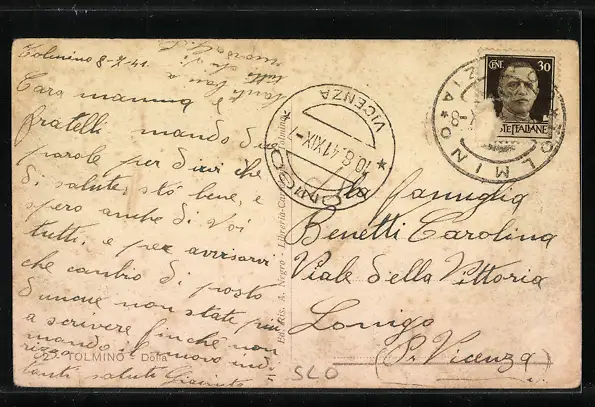 Tolmino 8-7-41
Cara mamma e
fratelli mando due
parole per dirvi che
di salute stó bene, e
spero anche di voi
tutti, e per avvisarvi
che cambio di posto
dunque non state più
a scrivere finchè non
mando il nuovo indi
rizzo
tanti saluti Giacinto
tanti baci a
tutti
52 - TOLMINO - Dolia
Ed. Ris. A. Negro - Libreria-Car Tolmino
LONIGO
VICENZA
10.8.41XIX
CENT. 30
POSTE ITALIANE
TOLMINO
Alla famiglia
Benetti Carolina
Viale della Vittoria
Lonigo
(P. Vicenza)
SLO